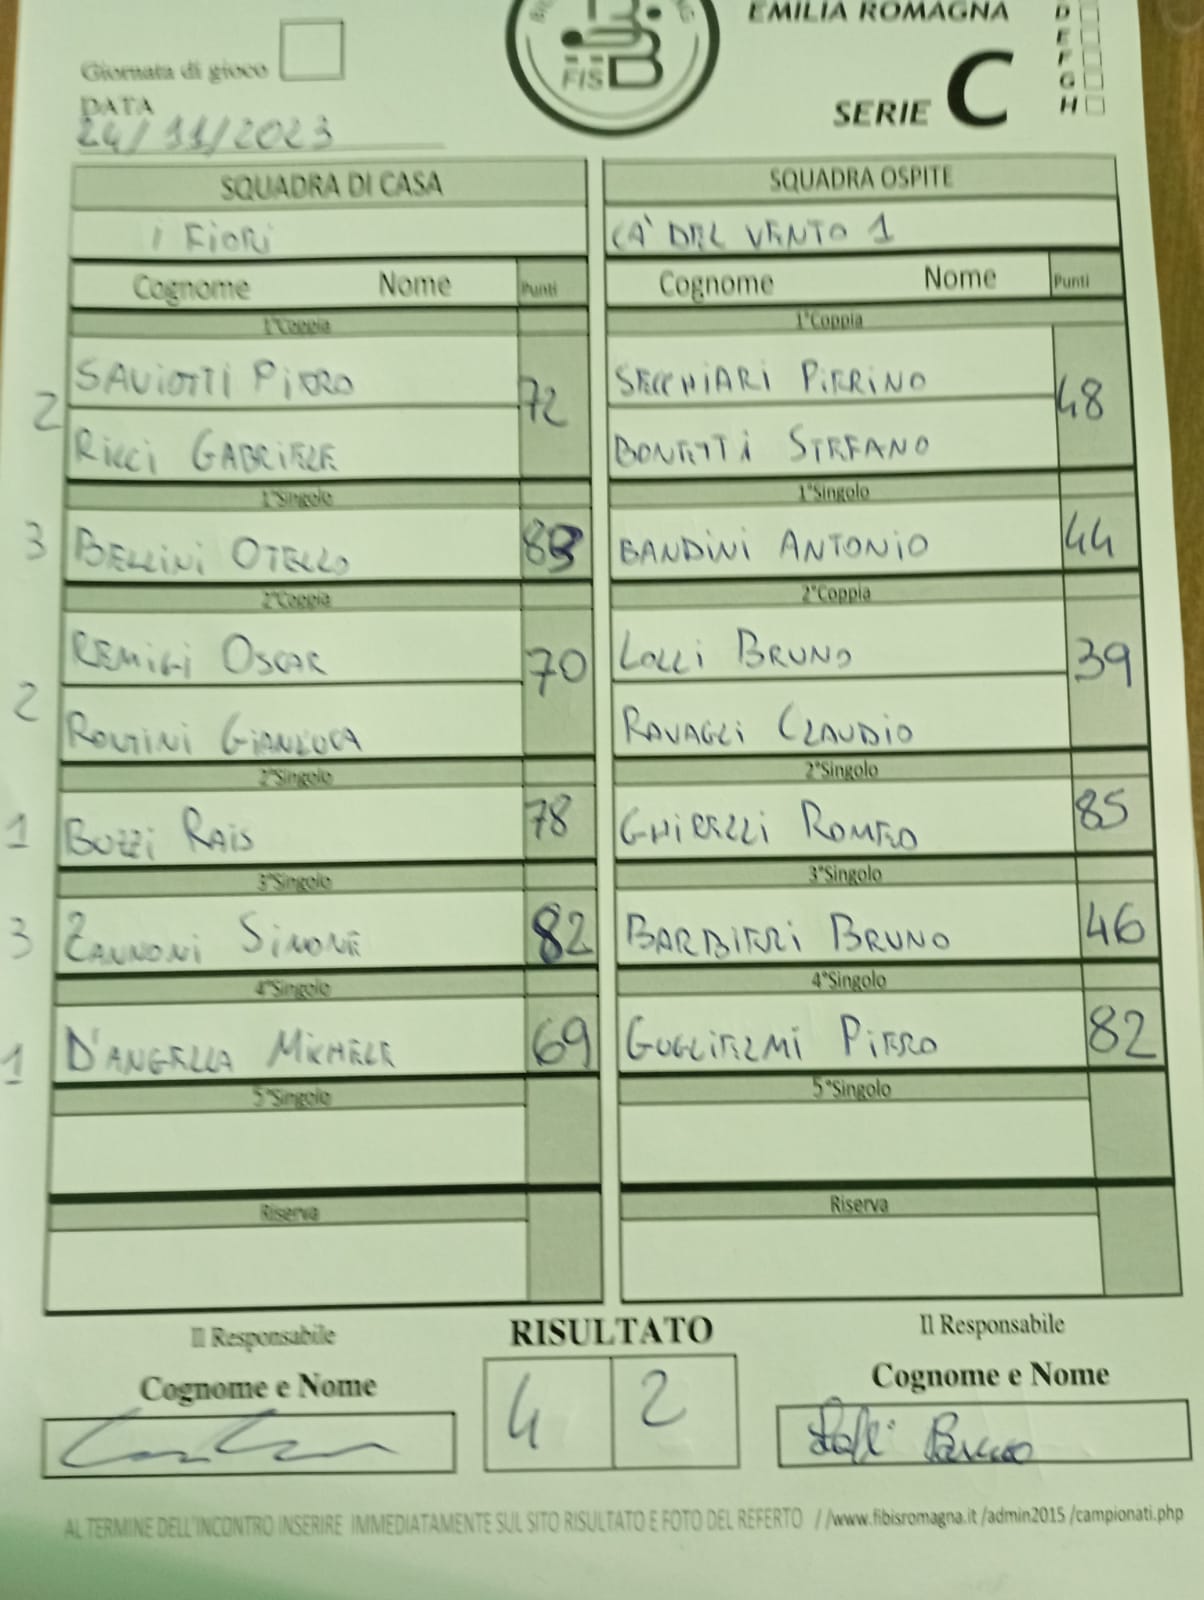 EMILIA ROMAGNA
D
E
F
G
H
Giornata di gioco
FIS B
SERIE C
DATA
24/11/2023
SQUADRA DI CASA
SQUADRA OSPITE
I FIORI
CA' DEL VENTO 1
Cognome Nome Punti
Cognome Nome Punti
1°Coppia
1°Coppia
2
SAVIOTTI PIERO
72
SECCHIARI PIERINO
48
RICCI GABRIELE
BONETTI STEFANO
1°Singolo
1°Singolo
3 BELLINI OTELLO
BANDINI ANTONIO 44
2°Coppia
2°Coppia
REMIGI OSCAR 70
LOLLI BRUNO 39
2
GIANLUCA
RAVAGLI CLAUDIO
2°Singolo
2°Singolo
1 BUZZI RAIS 78
GHIRELLI ROMEO 85
3°Singolo
3°Singolo
3 ZANNONI SIMONE 82
BARBIERI BRUNO 46
4°Singolo
4°Singolo
1 D'ANGELLA MICHELE 69
GUGLIELMI PIERO 82
5°Singolo
5°Singolo
Riserva
Riserva
Il Responsabile
RISULTATO
Il Responsabile
Cognome e Nome
4 2
Cognome e Nome
Lolli Bruno
AL TERMINE DELL'INCONTRO INSERIRE IMMEDIATAMENTE SUL SITO RISULTATO E FOTO DEL REFERTO //www.fibisromagna.it /admin2015 /campionati.php